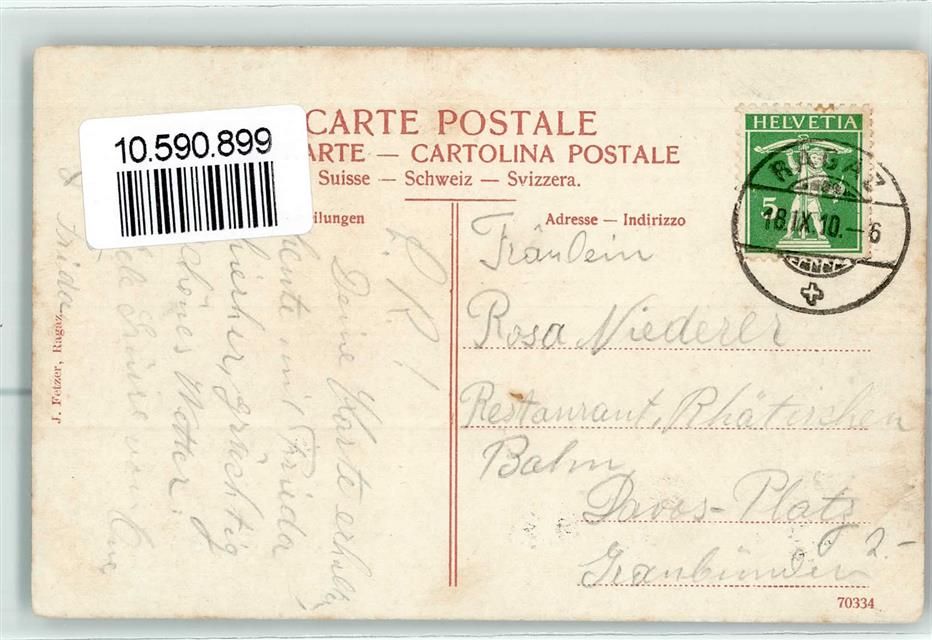 10.590.899
CARTE POSTALE
ARTE — CARTOLINA POSTALE
Suisse — Schweiz — Svizzera.
ilungen
Adresse — Indirizzo
HELVETIA
5
RAGAZ
18.IX.10.–6
L. R.!
Deine Karte erhalten,
heute mit Frieda
hierher, prächtig
schönes Wetter.
Grüsse von
Frieda
Fräulein
Rosa Niederer
Restaurant, Rhätischen
Bahn,
Davos-Platz
Graubünden
2.-
J. Fetzer, Ragaz.
70334